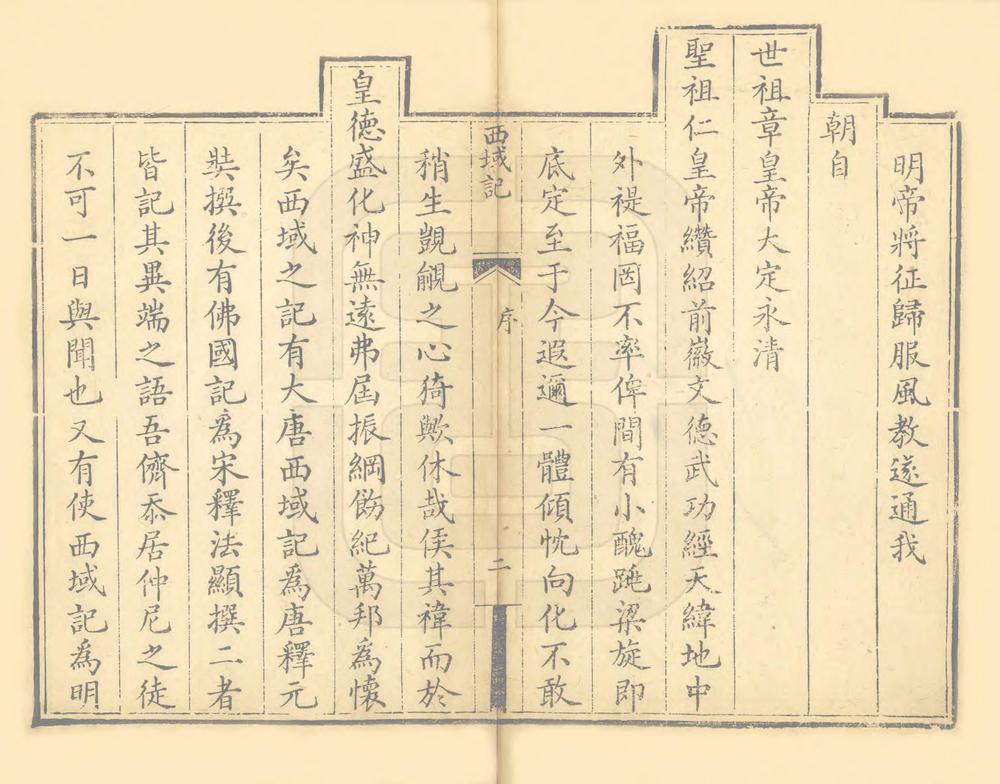 明帝將征歸服風教遂通我
朝自
世祖章皇帝大定永清
聖祖仁皇帝纘紹前徽文德武功經天緯地中
外禔福罔不率俾間有小醜跳梁旋即
底定至于今遐邇一體傾忱向化不敢
西域記
序
二
稍生覬覦之心猗歟休哉侯其禕而於
皇德盛化神無遠弗屆振綱飭紀萬邦為懷
矣西域之記有大唐西域記為唐釋元
奘撰後有佛國記為宋釋法顯撰二者
皆記其異端之語吾儕忝居仲尼之徒
不可一日與聞也又有使西域記為明